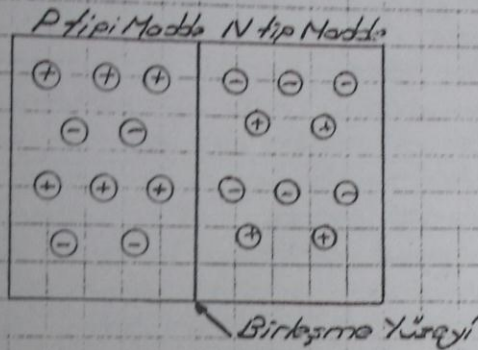 P tipi Madde N tip Madde
+ + + - - -
- - + +
+ + + - - -
- - + +
Birleşme Yüzeyi